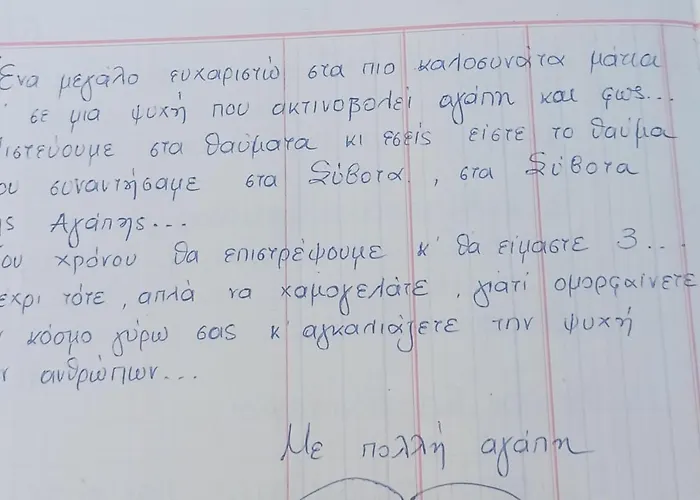 Ένα μεγάλο ευχαριστώ στα πιο καλοσυνάτα μάτια
σε μια ψυχή που ακτινοβολεί αγάπη και φως...
ιστεύουμε στα θαύματα κι εσείς είστε το θαύμα
ου συναντήσαμε στα Σύβοτα, στα Σύβοτα
ης Αγάπης...
ου χρόνου θα επιστρέψουμε κ' θα είμαστε 3...
έχρι τότε, απλά να χαμογελάτε, γιατί ομορφαίνετε
κόσμο γύρω σας κ' αγκαλιάζετε την ψυχή
ν ανθρώπων...
Με πολλή αγάπη